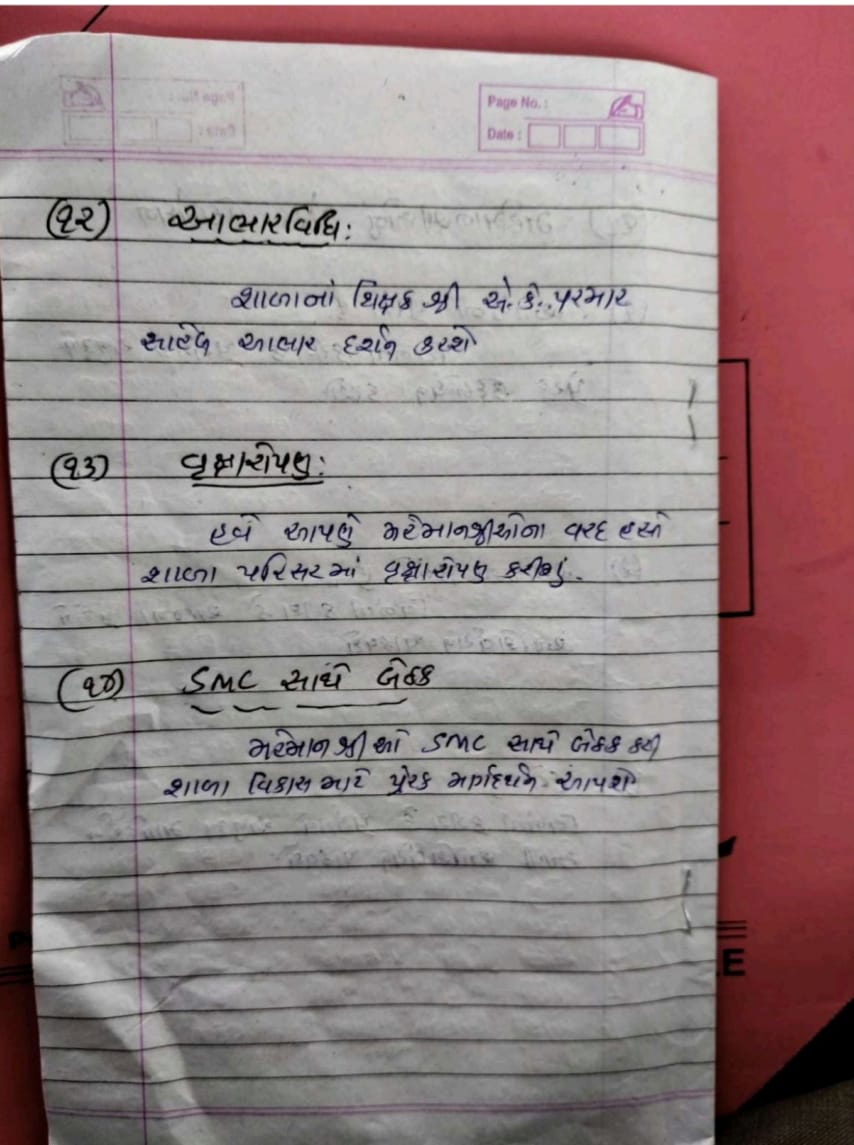 Page No. :
Date :
(૧૨) આભારવિધિ:
શાળાનાં શિક્ષક શ્રી એ.કે. પરમાર
સાહેબ આભાર દર્શન કરશે
(૧૩) વૃક્ષારોપણ:
હવે આપણે મહેમાનશ્રીઓના વરદ હસ્તે
શાળા પરિસરમાં વૃક્ષારોપણ કરીશું.
(૧૪) SMC સાથે બેઠક
મહેમાનશ્રીઓ SMC સાથે બેઠક કરી
શાળા વિકાસ માટે પ્રેરક માર્ગદર્શન આપશે